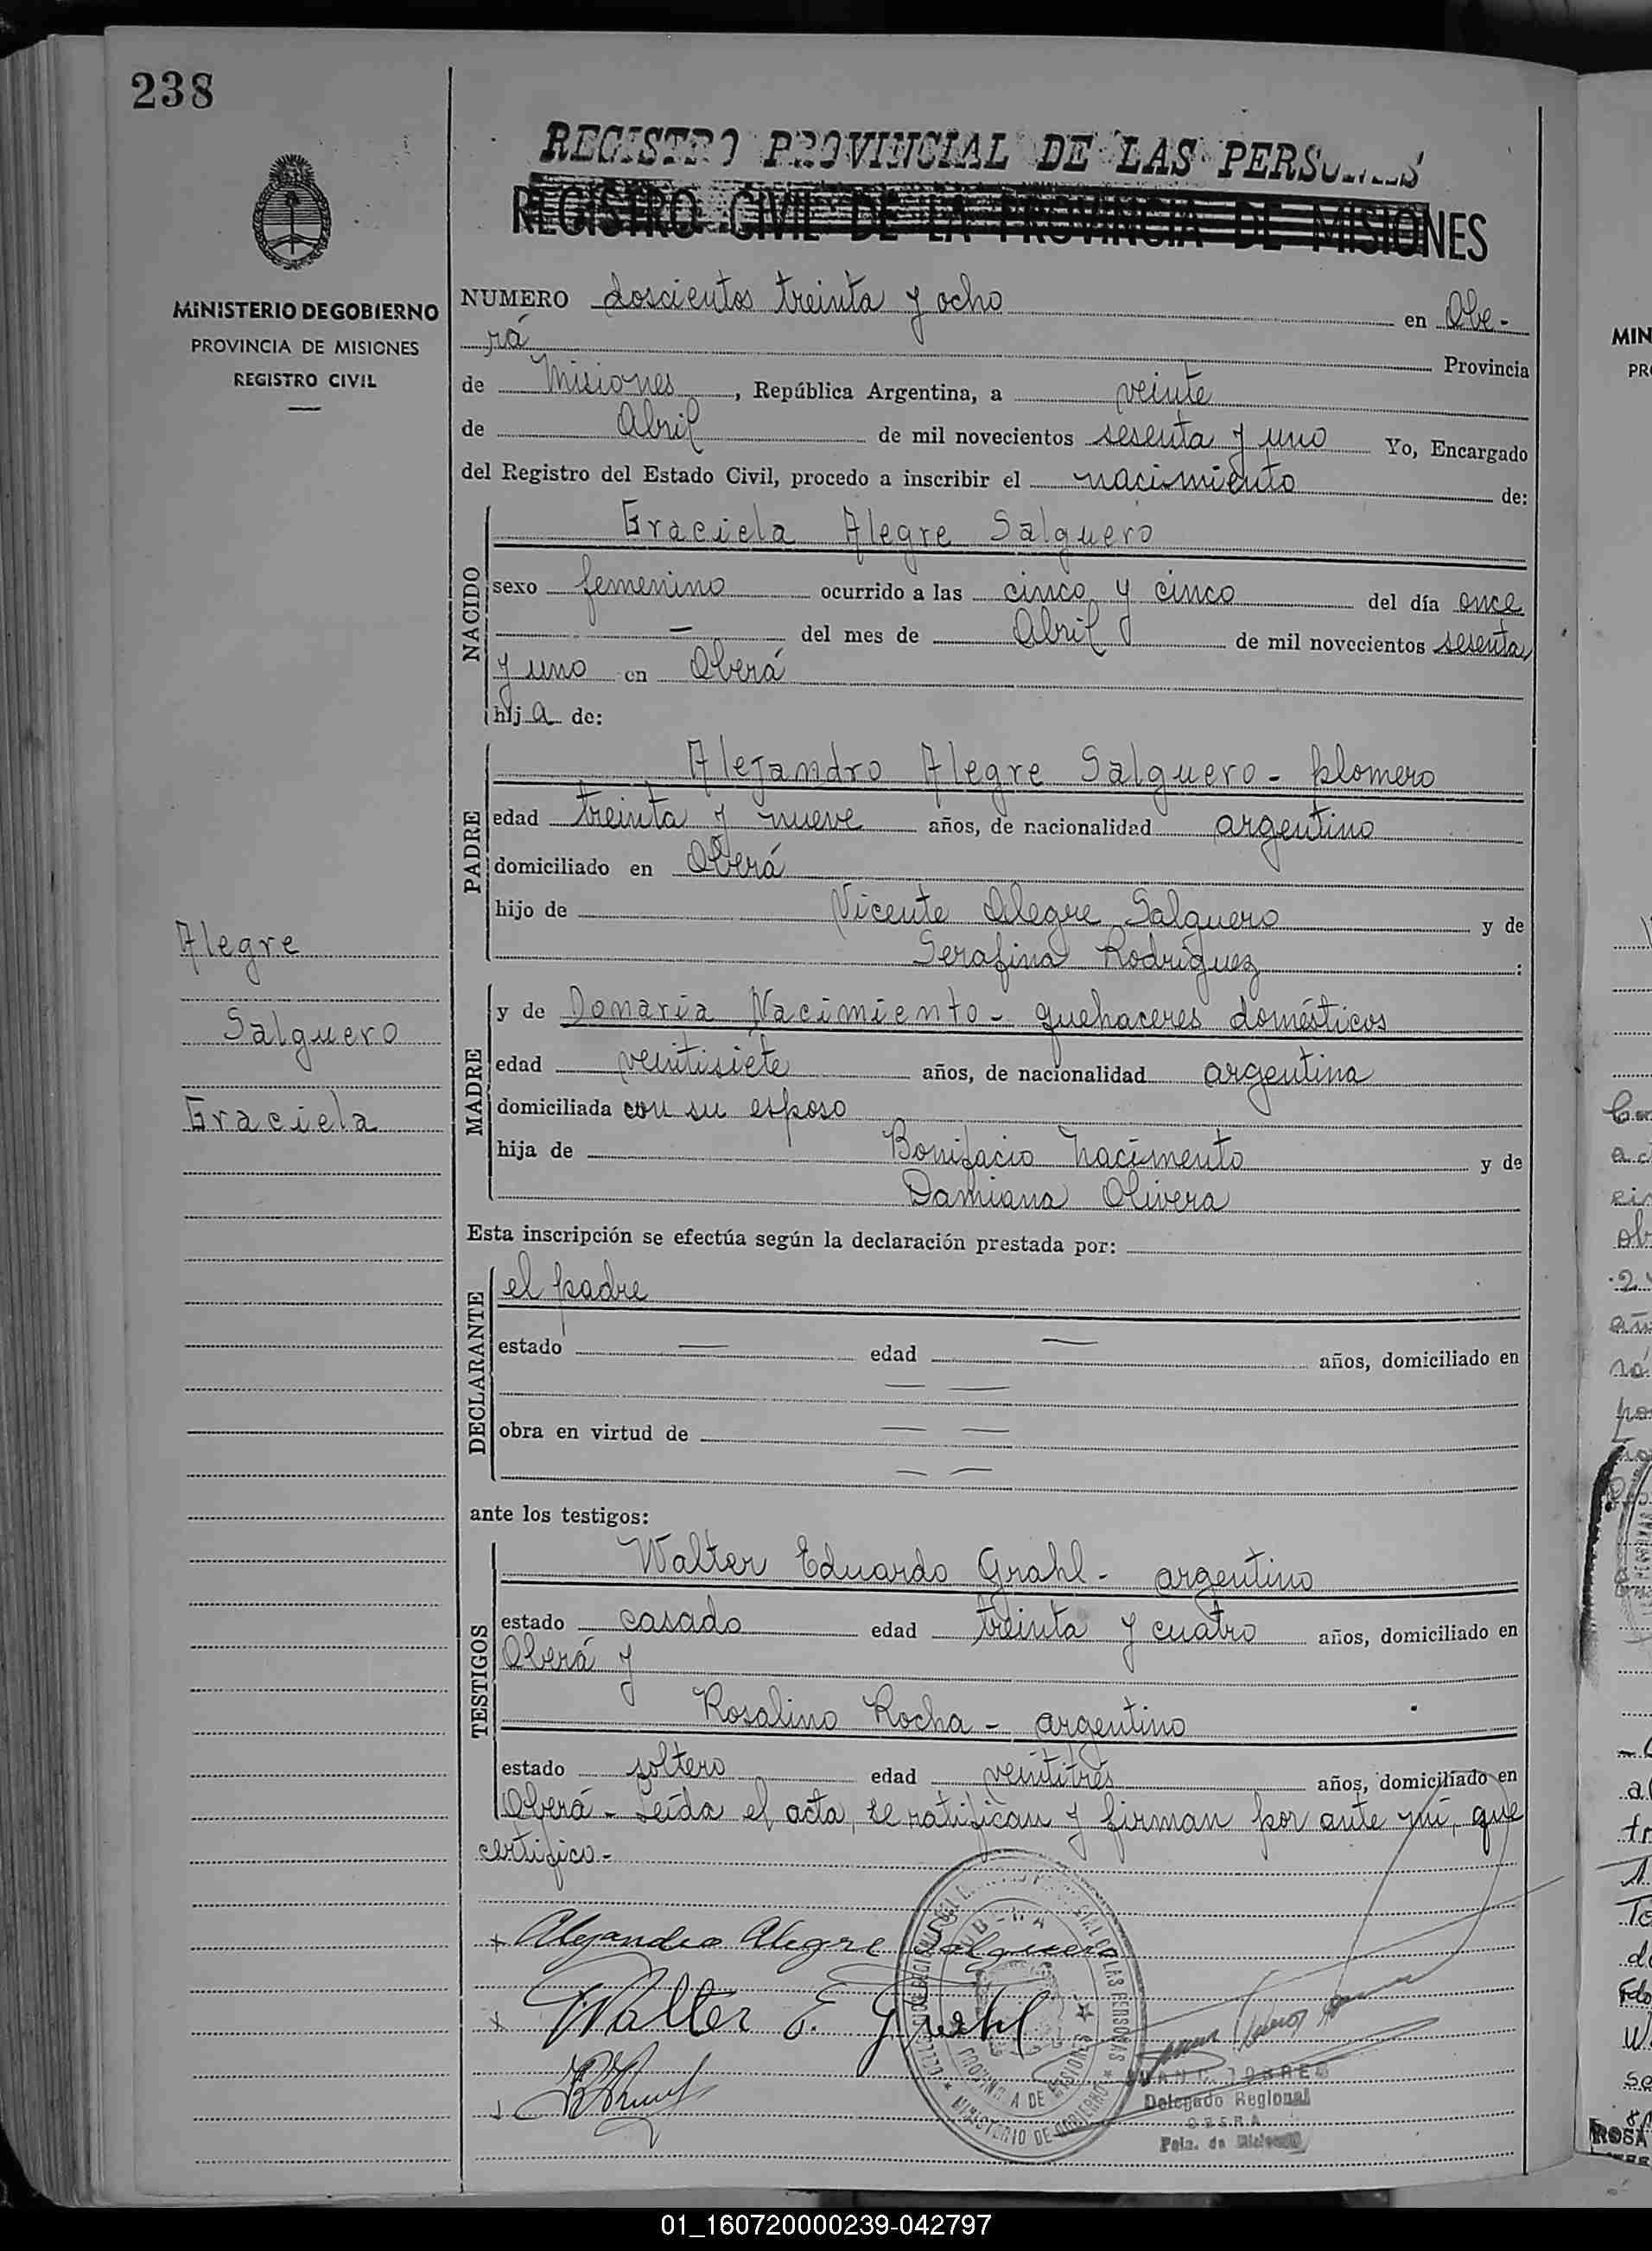 238
REGISTRO PROVINCIAL DE LAS PERSONAS
REGISTRO CIVIL DE LA PROVINCIA DE MISIONES
MINISTERIO DE GOBIERNO
PROVINCIA DE MISIONES
REGISTRO CIVIL
NUMERO doscientos treinta y ocho en Obe-
rá Provincia
de Misiones, República Argentina, a veinte
de Abril de mil novecientos sesenta y uno Yo, Encargado
del Registro del Estado Civil, procedo a inscribir el nacimiento de:
NACIDO
Graciela Alegre Salguero
sexo femenino ocurrido a las cinco y cinco del día once
— del mes de Abril de mil novecientos sesenta
y uno en Oberá
hija de:
PADRE
Alejandro Alegre Salguero - plomero
edad treinta y nueve años, de nacionalidad argentino
domiciliado en Oberá
hijo de Vicente Alegre Salguero y de
Serafina Rodríguez :
Alegre
Salguero
Graciela
MADRE
y de Donaria Nacimiento - quehaceres domésticos
edad veintisiete años, de nacionalidad argentina
domiciliada con su esposo
hija de Bonifacio Nacimento y de
Damiana Olivera
Esta inscripción se efectúa según la declaración prestada por:
DECLARANTE
el padre
estado — edad — años, domiciliado en
— —
obra en virtud de — —
— —
ante los testigos:
TESTIGOS
Walter Eduardo Grahl - argentino
estado casado edad treinta y cuatro años, domiciliado en
Oberá y
Rosalino Rocha - argentino
estado soltero edad veintitrés años, domiciliado en
Oberá - Leída el acta, se ratifican y firman por ante mí, que
certifico.-
Alejandro Alegre Salguero
Walter E. Grahl
PROVINCIA DE MISIONES
MINISTERIO DE GOBIERNO
JUAN C. TORRES
Delegado Regional
OBERA
Pcia. de Misiones
01_160720000239-042797